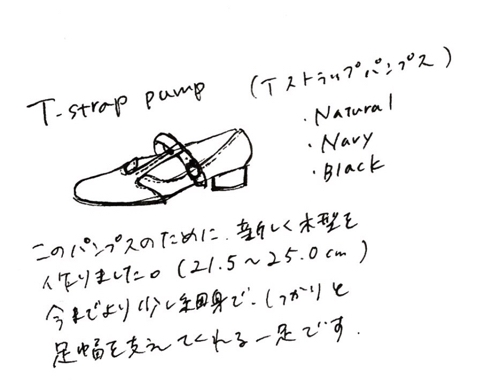 T-strap pump
(Tストラップパンプス)
・Natural
・Navy
・Black
このパンプスのために、新しく木型を
作りました。(21.5～25.0cm)
今までより少し細身で、しっかりと
足幅を支えてくれる一足です.